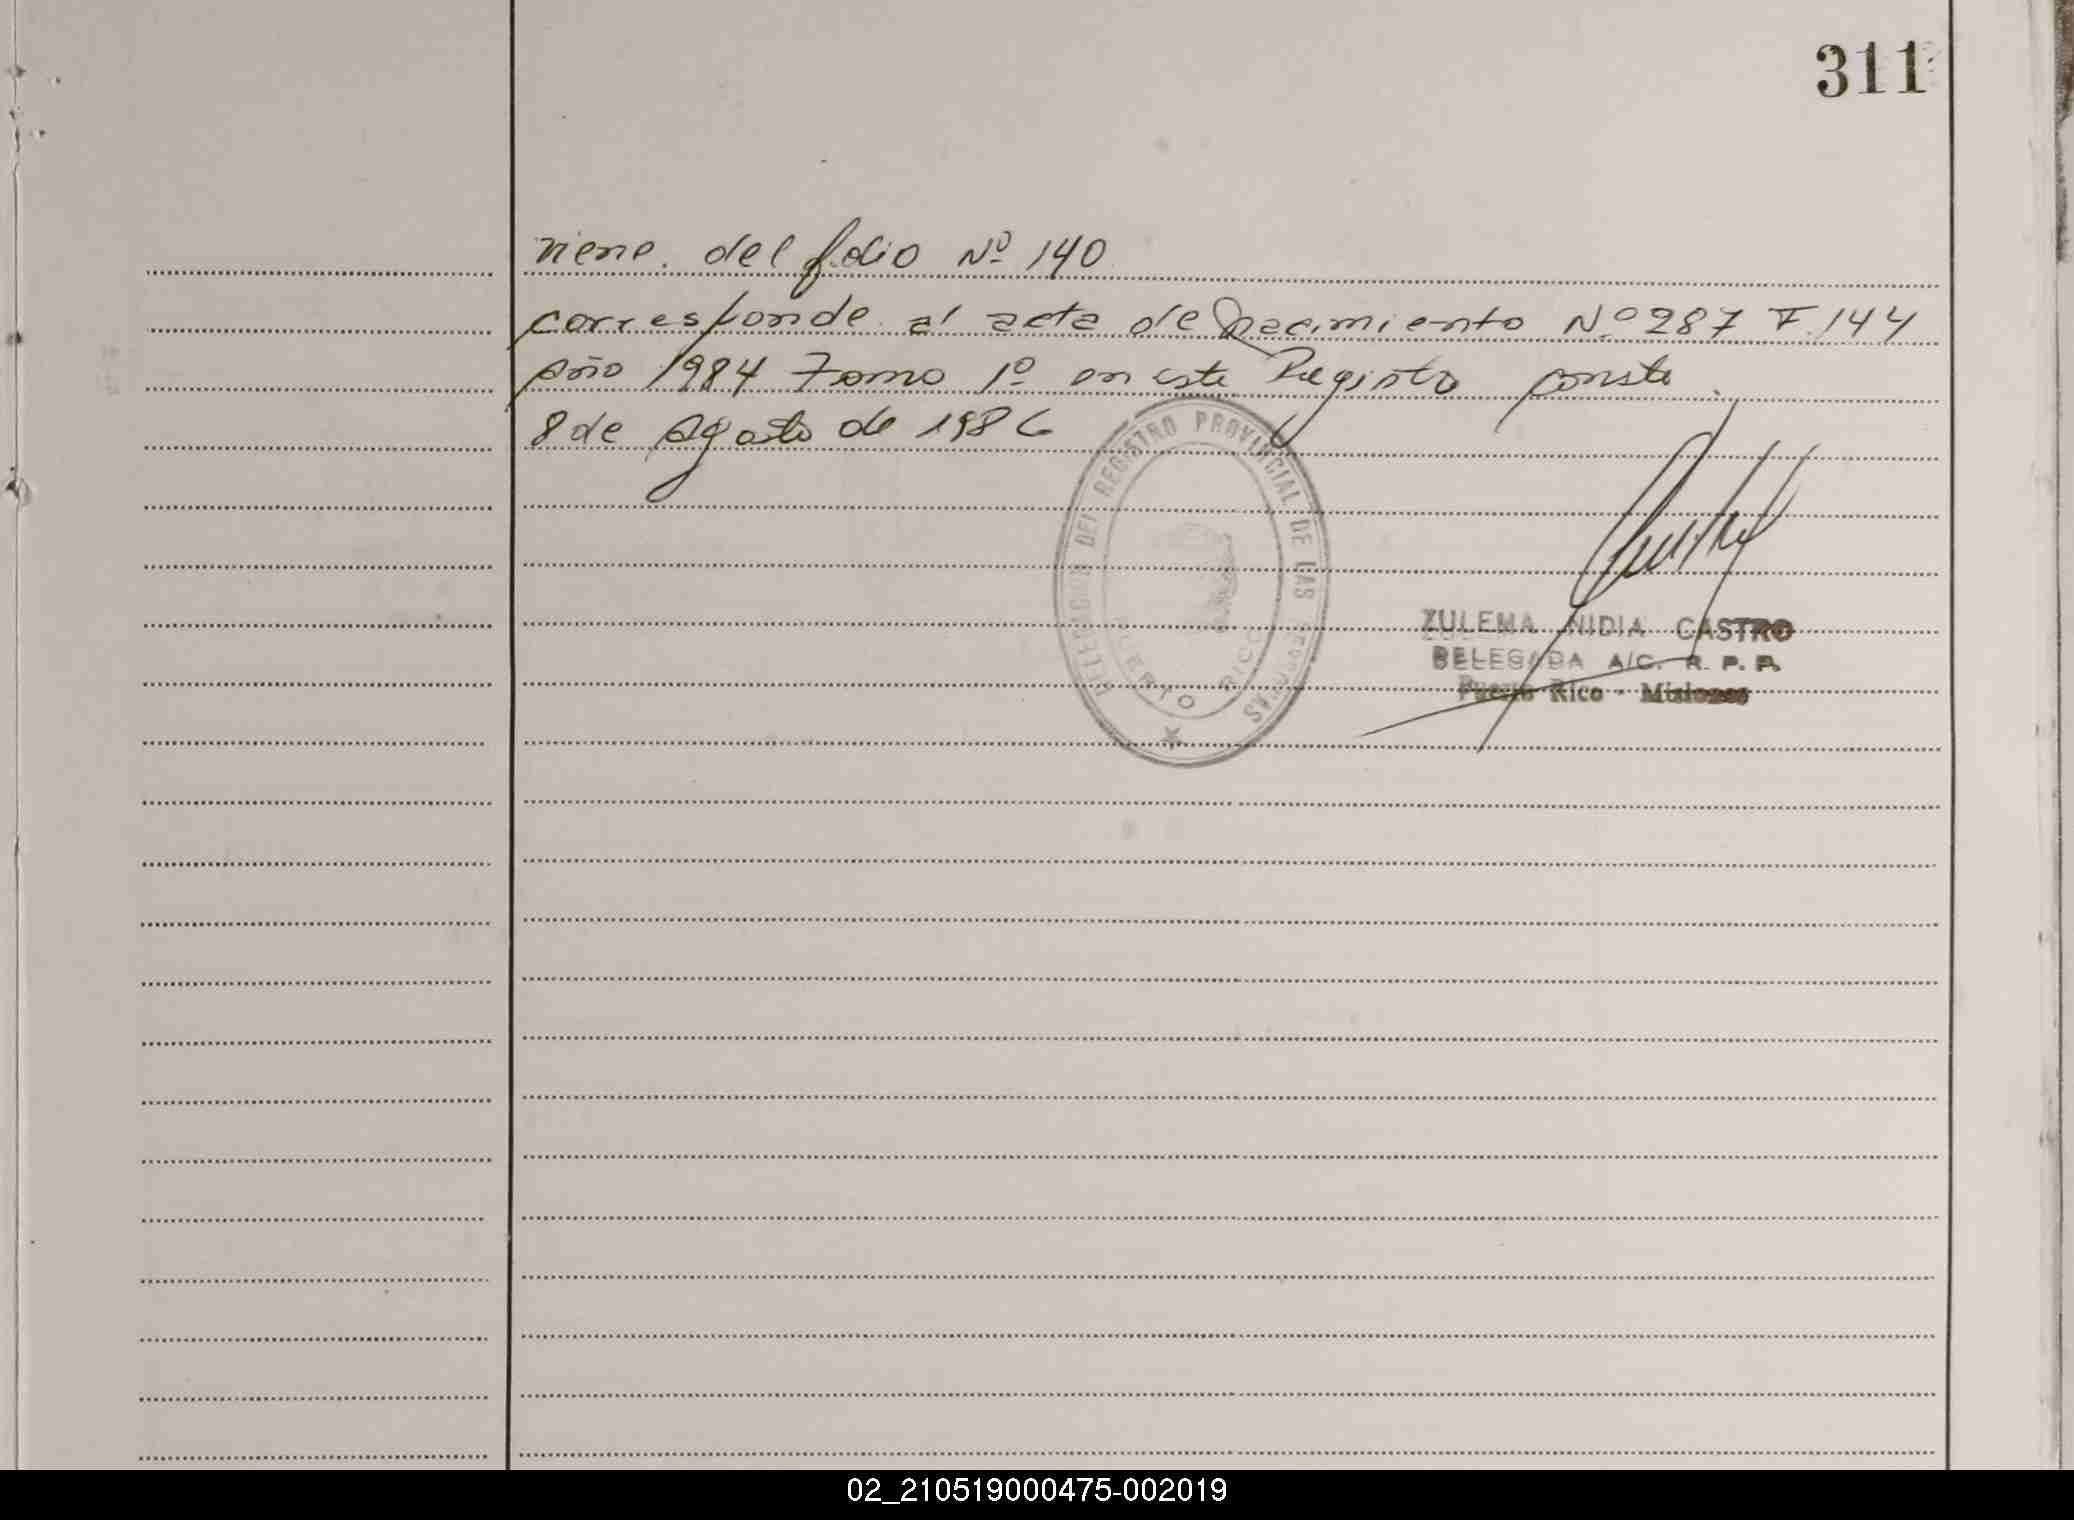 311
viene. del folio Nº 140
corresponde al acta de nacimiento Nº 287 F. 144
Año 1984 Tomo 1º en este Registro conste.
8 de Agosto de 1986
DELEGACION DEL REGISTRO PROVINCIAL DE LAS PERSONAS
PUERTO RICO
ZULEMA NIDIA CASTRO
DELEGADA A/C. R. P. P.
Puerto Rico - Misiones
02_210519000475-002019